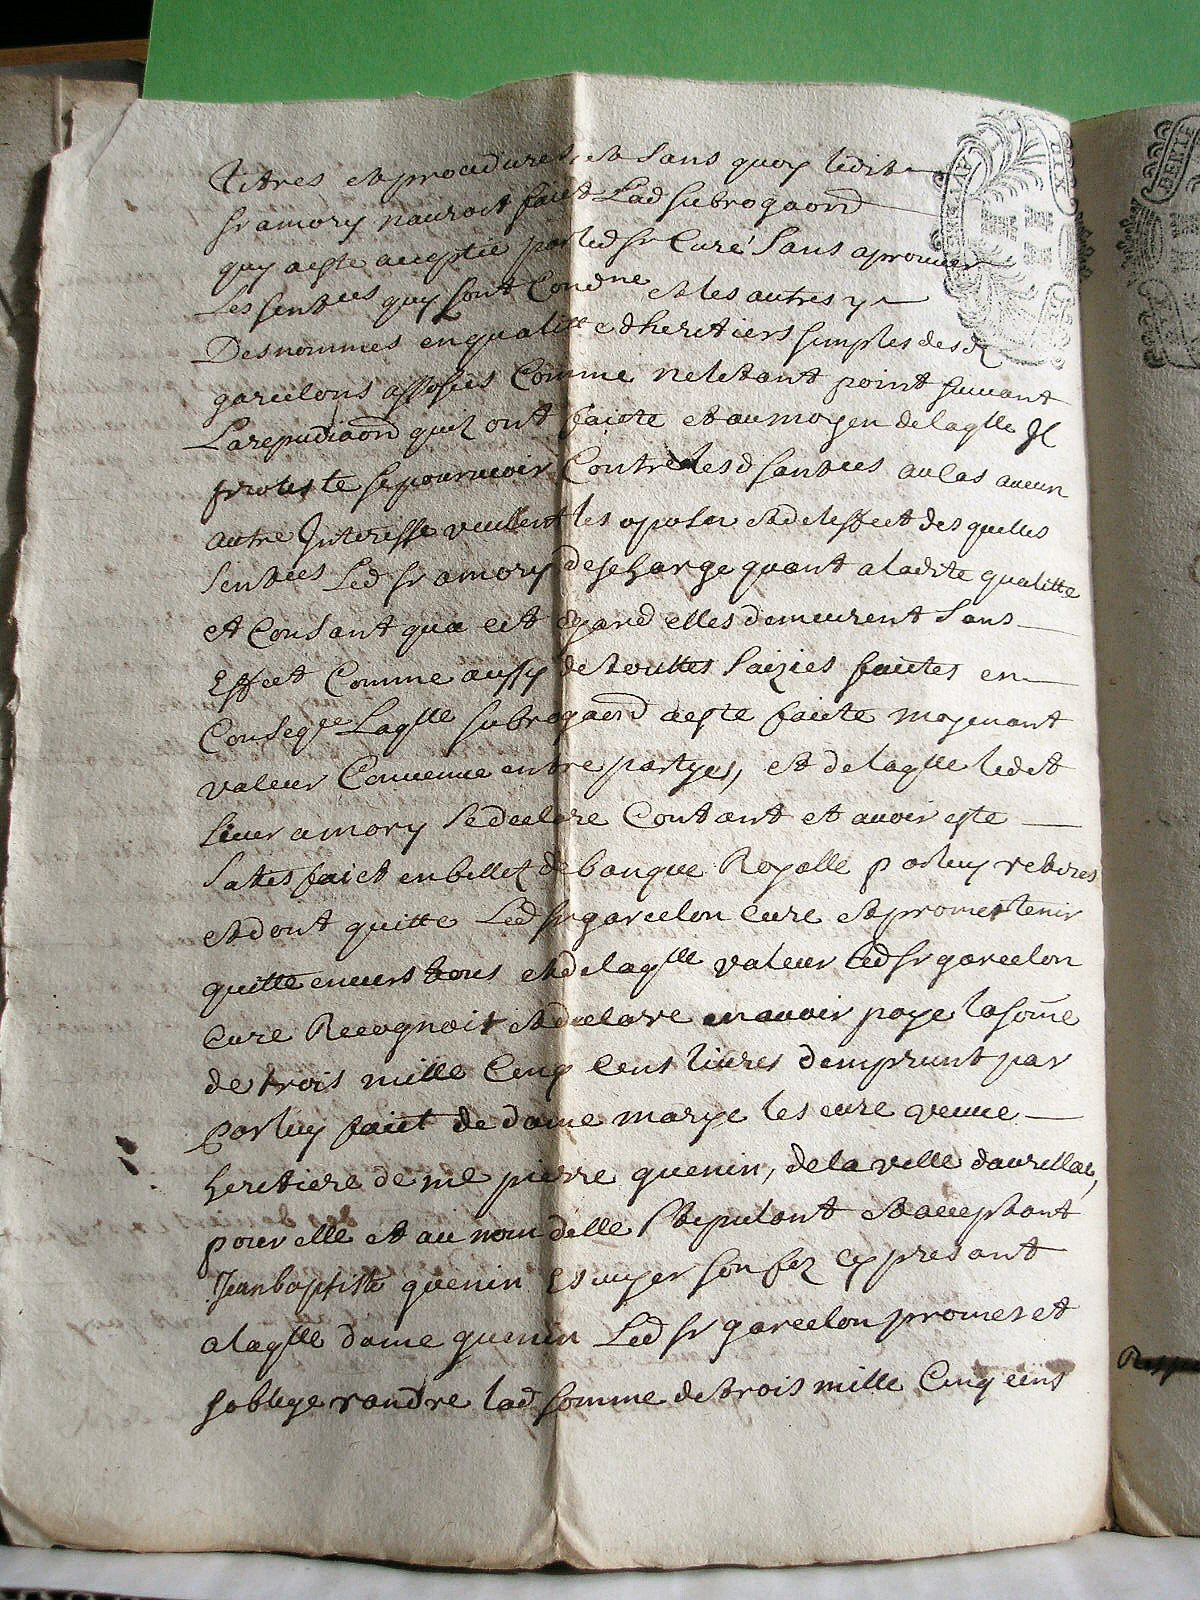 titres et procedures et sans quoy ledit
sr amory nauroit faict Lad subrogaon
quy aeste aceptée par led sr Curé sans aprouver
Les sentces quy sont Condne et les autres y
Desnommes en qualitte dheretiers simples desd
garcelons assosies Comme neletant point suivant
Larepudiaon quil ont faicte et au moyen de laqlle Il
proteste se pourvoir Contre lesd santces au cas aucun
autre Interesse veullent les oposer et de leffect des quelles
sentces Led sr amory descharge quant a ladite qualitte
et Consant qua cet egard elles demeurent sans
Effect Comme aussy de touttes saizies faictes en
Conseqce Laqlle subrogaon aeste faicte moyenant
valeur Convenue entre partyes, et de laqlle ledit
sieur amory se declare Contant et avoir este
satisfaict en billet de banque Royalle par luy retires
et dont quitte Led sr garcelon cure et promet tenir
quitte envers tous et de laqlle valeur led sr garcelon
Cure Recognoit et declare en avoir paye la some
de trois mille Cinq Cens livres demprunt par
par luy faict de dame marye lescure veuve
heretiere de me pierre guenin, de la ville daurillac,
pour elle et au nom delle stipulant et aceptant
Jean baptiste guenin Escuyer son fez cy presant
a laqlle dame guenin Led sr garcelon promet et
soblige randre lad somme de trois mille Cinq cens